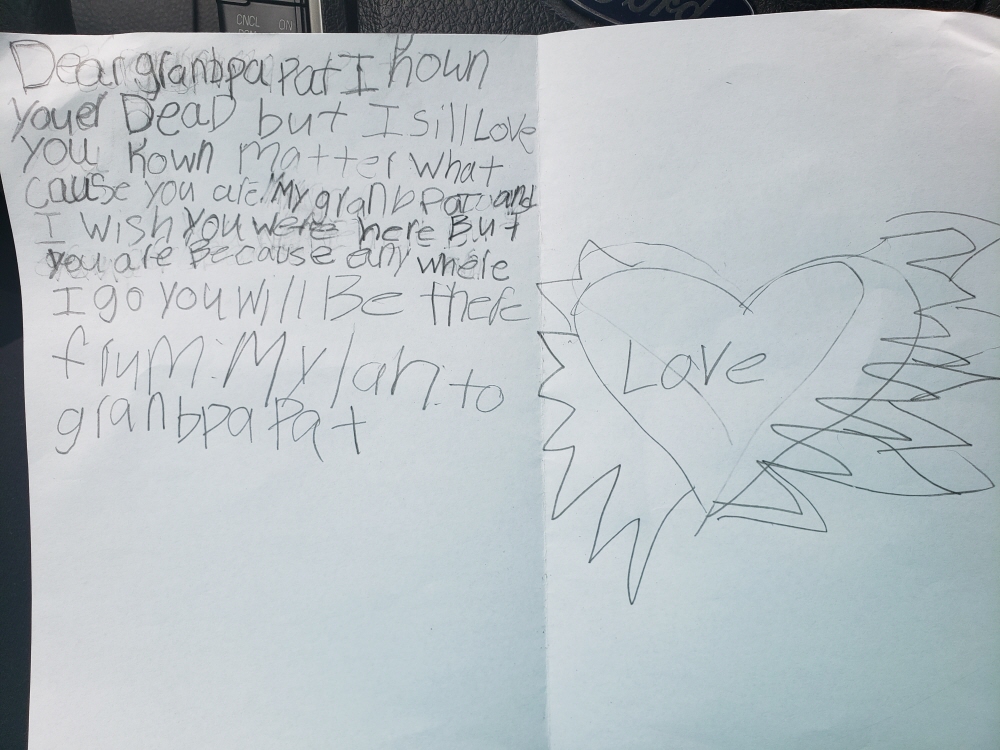 CNCL ON
Ford
Dear granbpa Pat I kown
youer DeaD but I sill Love
you kown matter what
cause you are My granbpa and
I wish you were here But
you are Because any where
I go you will Be there
frum: Mylah: to
granbpa Pat
Love